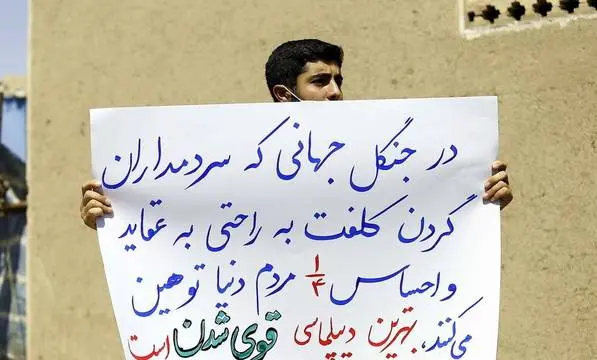 در جنگل جهانی که سردمداران
گردن کلفت به راحتی به عقاید
و احساس ۱/۴ مردم دنیا توهین
می‌کنند، بهترین دیپلماسی قوی شدن است